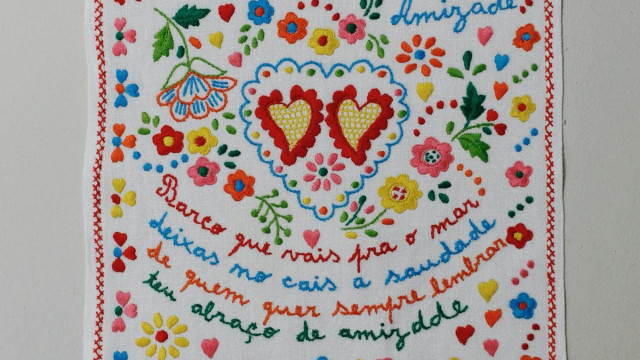 Amizade
Barco que vais pra o mar
deixas no cais a saudade
de quem quer sempre lembrar
teu abraço de amizdde